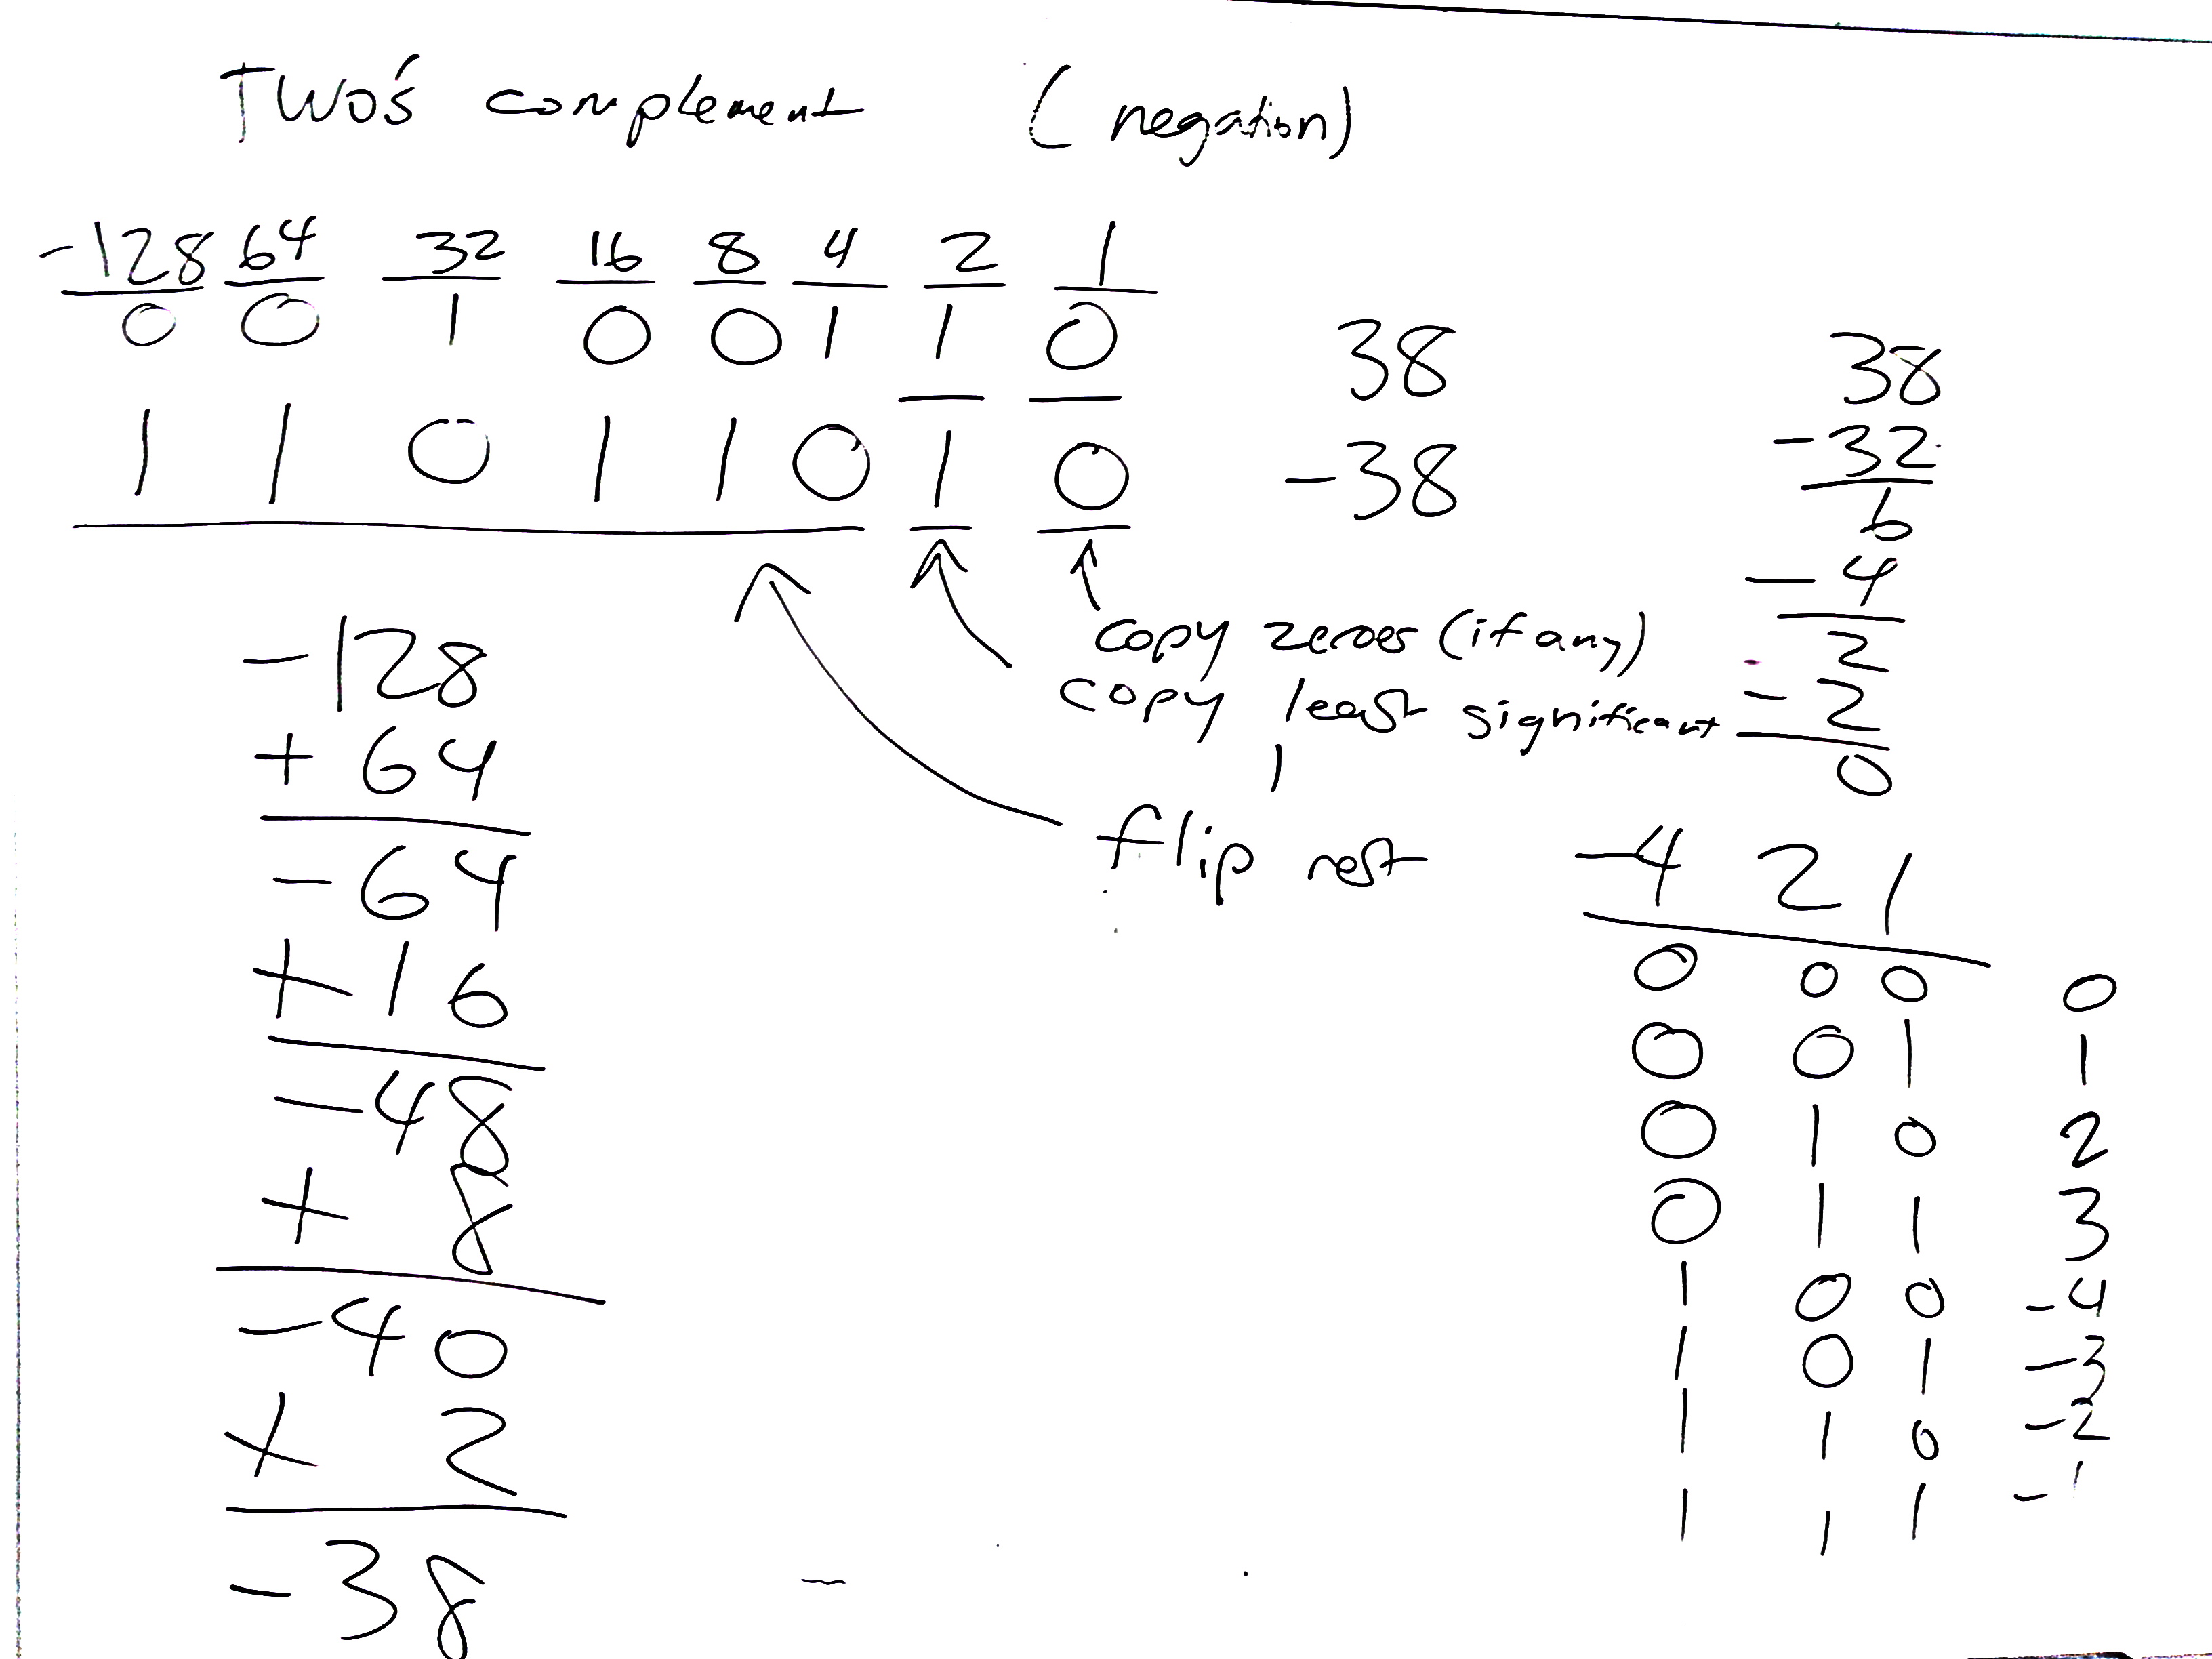 Two's complement (negation)
-128 64 32 16 8 4 2 1
0 0 1 0 0 1 1 0 38
1 1 0 1 1 0 1 0 -38
copy zeroes (if any)
copy least significant
1
flip rest
-128
+ 64
-64
+16
-48
+ 8
-40
+ 2
-38
38
-32
6
- 4
2
- 2
0
-4 2 1
0 0 0 0
0 0 1 1
0 1 0 2
0 1 1 3
1 0 0 -4
1 0 1 -3
1 1 0 -2
1 1 1 -1